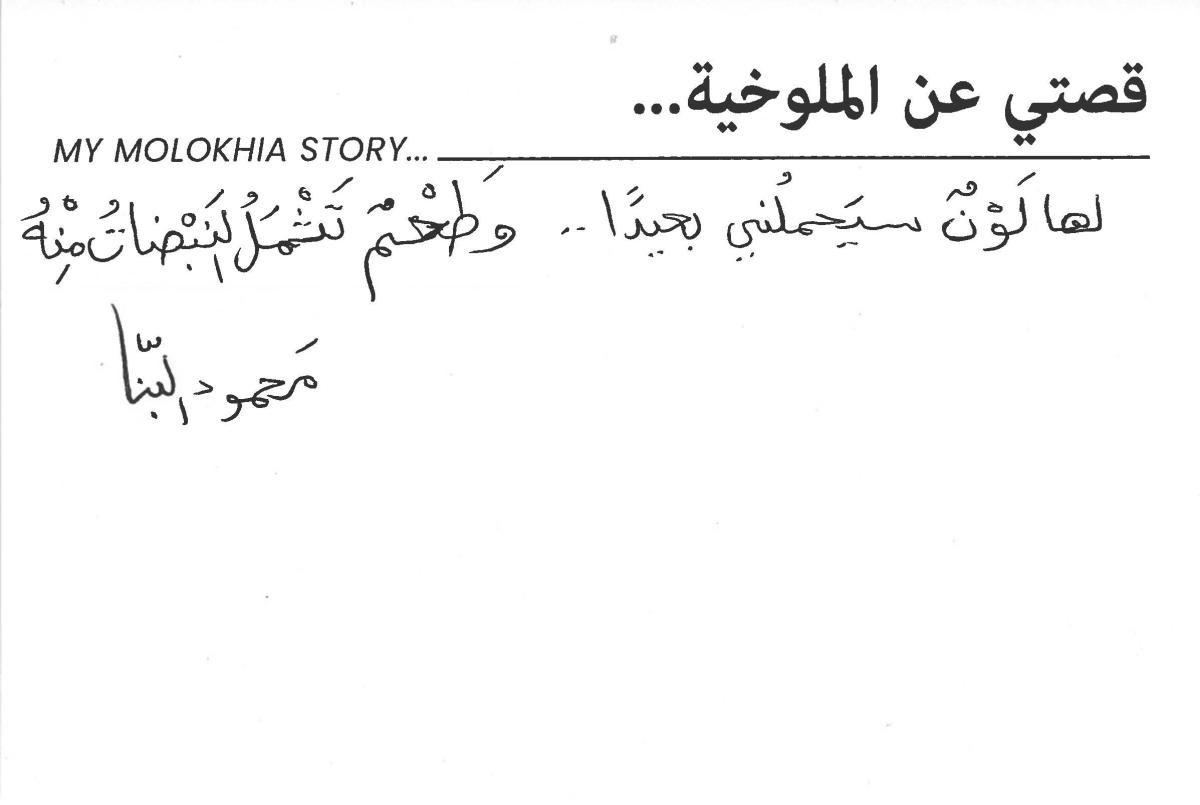 قصتي عن الملوخية...
MY MOLOKHIA STORY...
لها لَوْنٌ سيَحملُني بعيدًا .. وَطَعْمٌ تَشْمَلُ النَبْضاتُ مِنْهُ
مَحمود البنّا